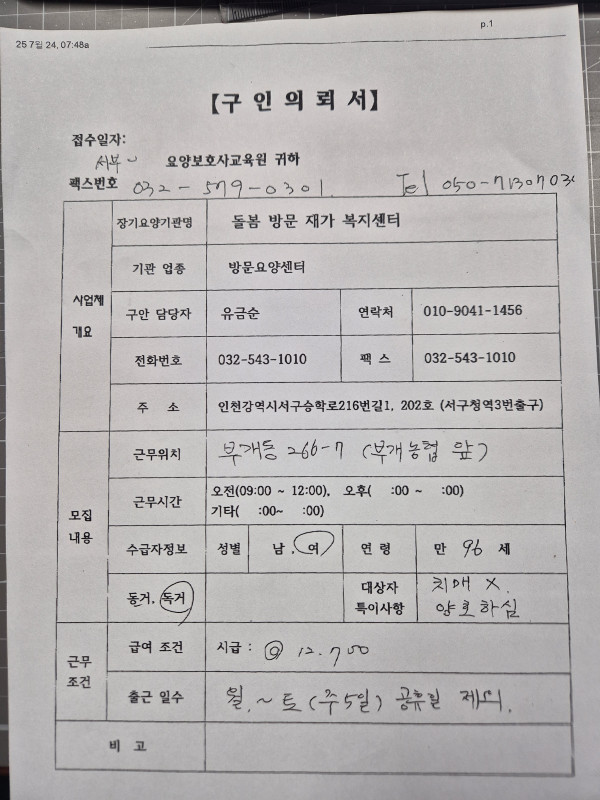 p.1
25 7월 24, 07:48a
【구 인 의 뢰 서】
접수일자:
서부 요양보호사교육원 귀하
팩스번호 032-579-0301. Tel 050-7130703
사업체 개요
장기요양기관명 돌봄 방문 재가 복지센터
기관 업종 방문요양센터
구안 담당자 유금순 연락처 010-9041-1456
전화번호 032-543-1010 팩 스 032-543-1010
주 소 인천강역시서구승학로216번길1, 202호 (서구청역3번출구)
모집 내용
근무위치 부개동 266-7 (부개농협 앞)
근무시간 오전(09:00 ~ 12:00), 오후( :00 ~ :00)
기타( :00~ :00)
수급자정보 성별 남, 여 연 령 만 96 세
동거, 독거 대상자 특이사항 치매 X.
양호하심
근무 조건
급여 조건 시급 : @ 12.700
출근 일수 월.~토(주5일) 공휴일 제외.
비 고